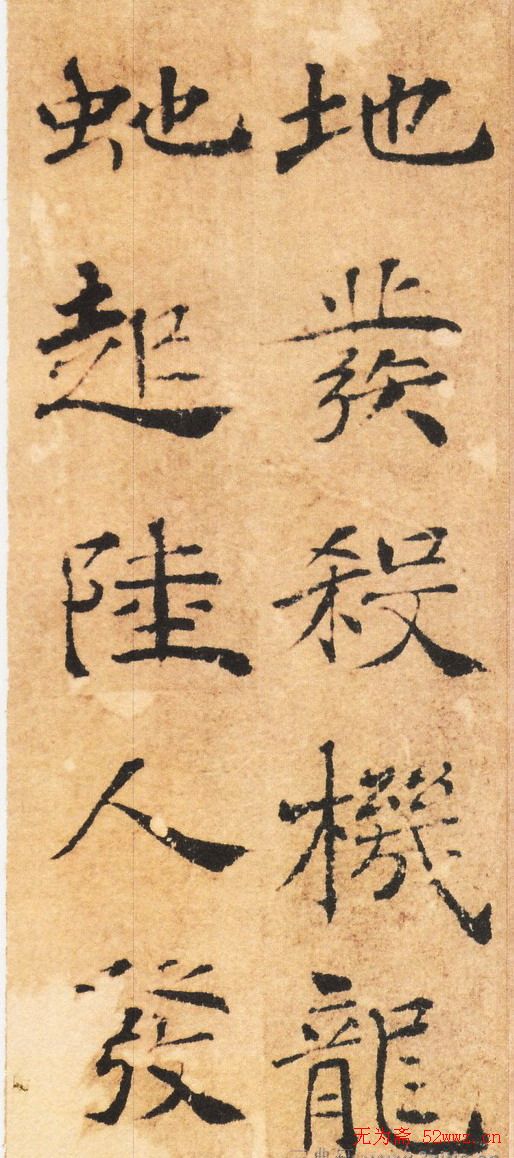 地發殺機龍
虵起陸人發
无为斋 52wwz.cn